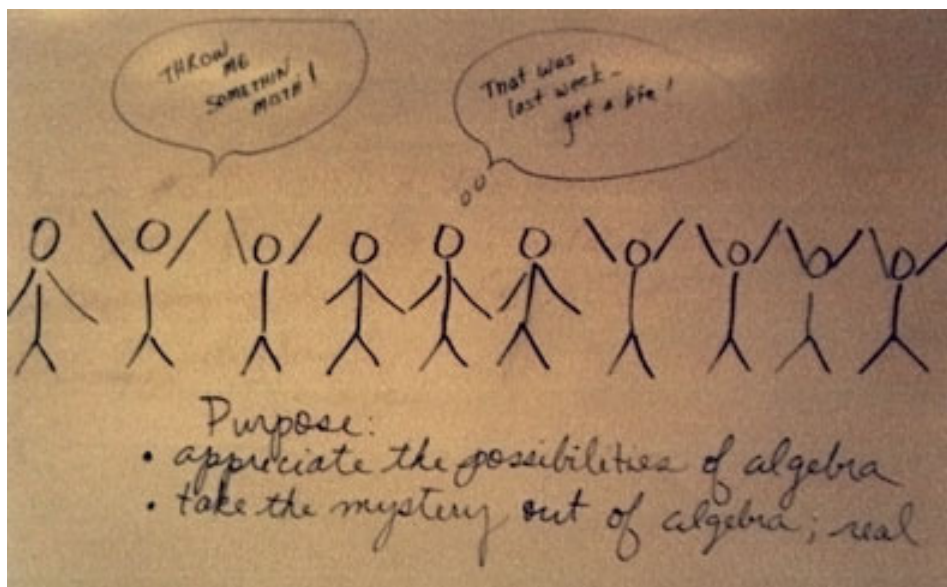 THROW
ME
SOMETHIN
MISTA!
That was
last week –
get a life!
Purpose:
• appreciate the possibilities of algebra
• take the mystery out of algebra; real